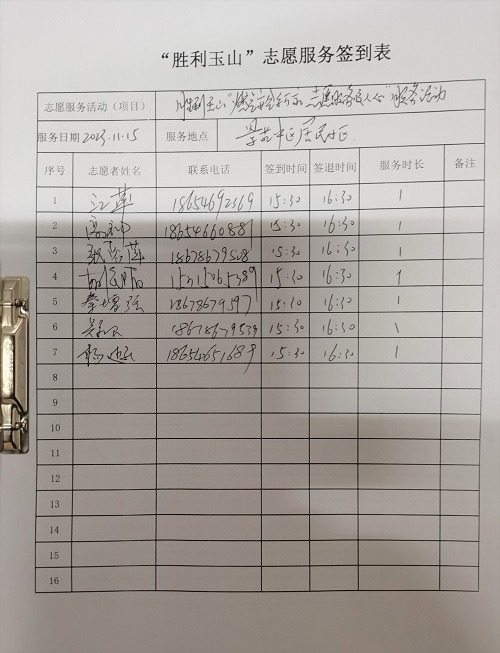 “胜利玉山”志愿服务签到表
志愿服务活动（项目） 胜利玉山“燃气安全行 志愿服务暖人心”服务活动
服务日期 2023.11.15 服务地点 景苑社区居民小区
序号 志愿者姓名 联系电话 签到时间 签退时间 服务时长 备注
1 江苹 18654692369 15:30 16:30 1
2 18654660887 15:30 16:30 1
3 18678679508 15:30 16:30 1
4 15:30 16:30 1
5 秦增强 18678679597 15:30 16:30 1
6 18678679539 15:30 16:30 1
7 18654651687 15:30 16:30 1
8
9
10
11
12
13
14
15
16